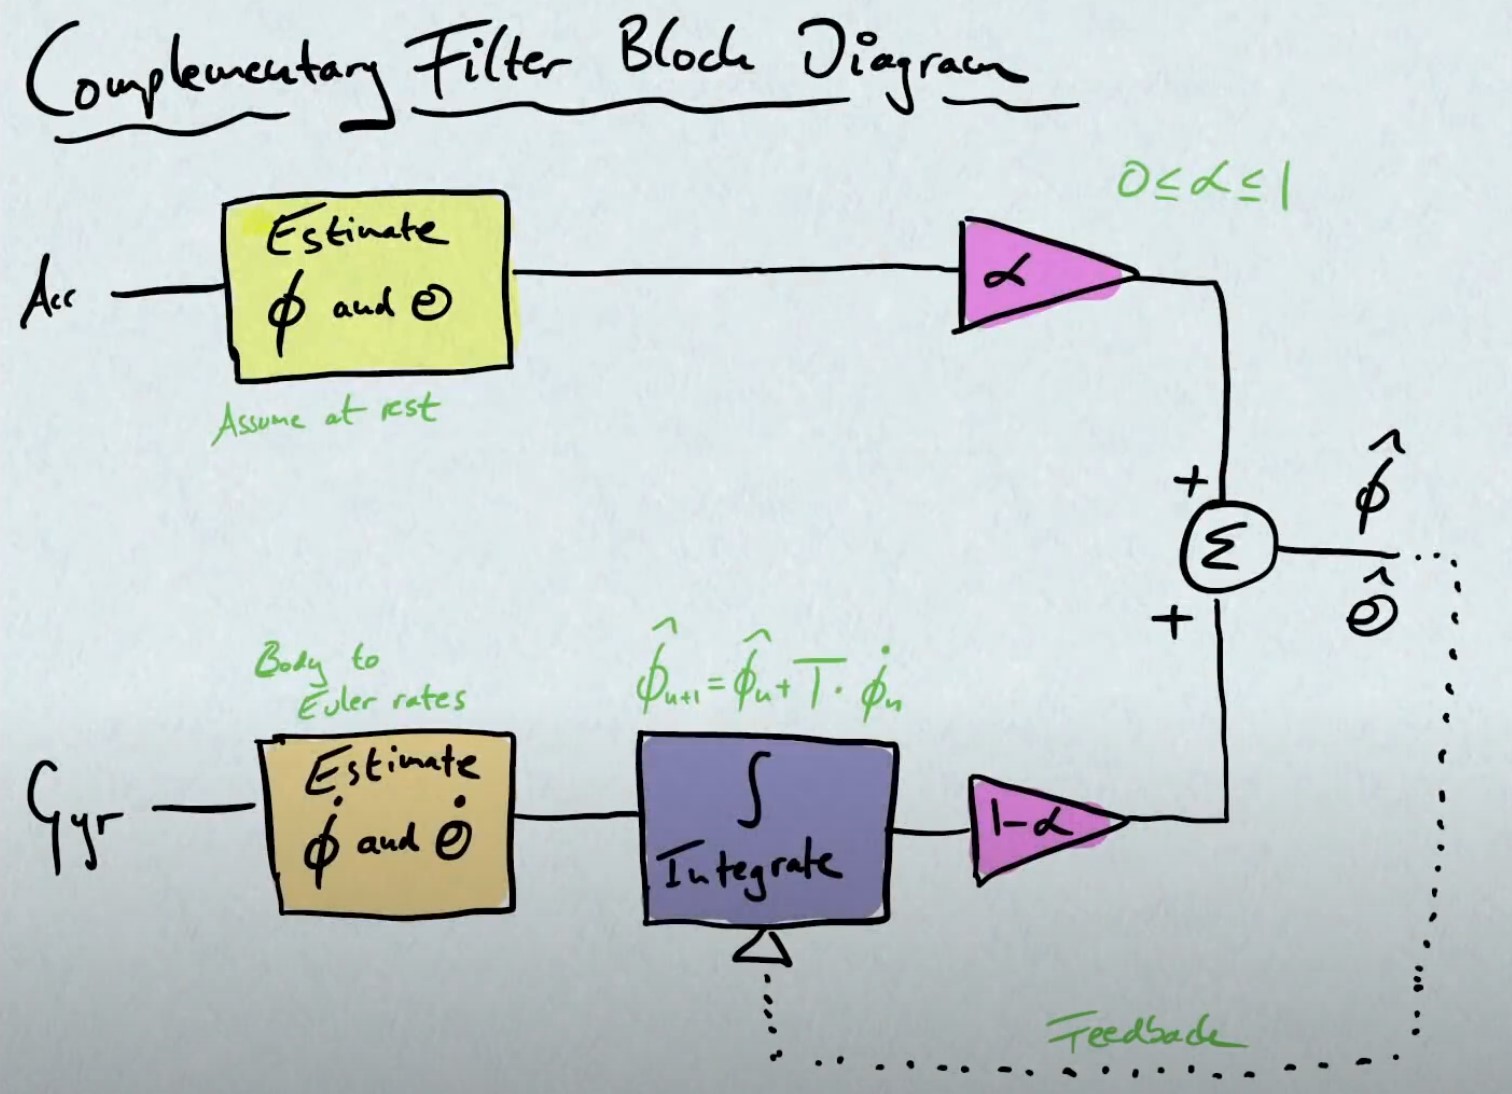 Complementary Filter Block Diagram
0 ≤ α ≤ 1
Estimate
ϕ and θ
α
Acc
Assume at rest
+
ϕ̂
Σ
θ̂
+
Body to
Euler rates
ϕ̂ₙ₊₁ = ϕ̂ₙ + T · ϕ̇ₙ
Estimate
ϕ̇ and θ̇
∫
Integrate
1-α
Gyr
Feedback